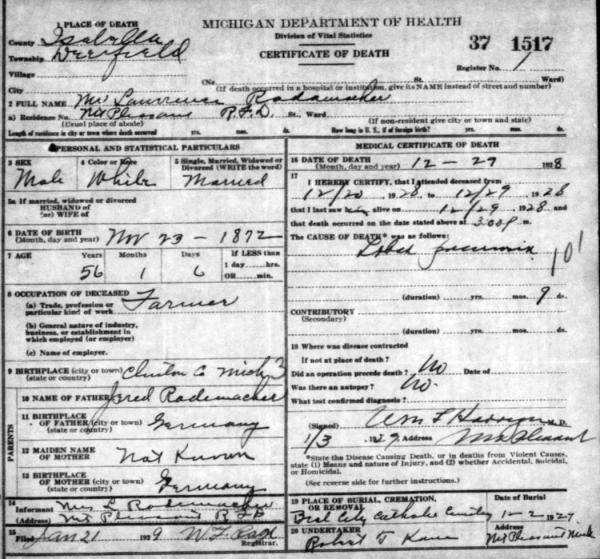 MICHIGAN DEPARTMENT OF HEALTH
Division of Vital Statistics
CERTIFICATE OF DEATH
37 1517
Register No. 1
1 PLACE OF DEATH
County Isabella
Township Deerfield
Village
City
(No. St. Ward)
(If death occurred in a hospital or institution, give its NAME instead of street and number)
2 FULL NAME Mr Lawrence Rademacher
a) Residence No. Mt Pleasant R.F.D. St., Ward
(Usual place of abode) (If non-resident give city or town and state)
Length of residence in city or town where death occurred yrs. mos. ds. How long in U. S., if of foreign birth? yrs. mos. ds.
PERSONAL AND STATISTICAL PARTICULARS
3 SEX 4 Color or Race 5 Single, Married, Widowed or
Divorced (WRITE the word)
Male White Married
5a If married, widowed or divorced
HUSBAND of
(or) WIFE of
6 DATE OF BIRTH
(Month, day and year) Nov 23 - 1872
7 AGE Years Months Days If LESS than
1 day hrs.
56 1 6 OR min.
8 OCCUPATION OF DECEASED
(a) Trade, profession or
particular kind of work Farmer
(b) General nature of industry,
business, or establishment in
which employed (or employer)
(c) Name of employer.
9 BIRTHPLACE (city or town) Clinton Co Mich
(state or country)
PARENTS
10 NAME OF FATHER Rademacher
11 BIRTHPLACE
OF FATHER (city or town) Germany
(state or country)
12 MAIDEN NAME
OF MOTHER Not Known
13 BIRTHPLACE
OF MOTHER (city or town) Germany
(state or country)
14
Informant Mrs L Rademacher
(Address) Mt Pleasant R.F.D
15
Filed Jan 21 1929 W.F.
Registrar.
MEDICAL CERTIFICATE OF DEATH
16 DATE OF DEATH
(Month, day and year) 12 - 29 1928
17
I HEREBY CERTIFY, that I attended deceased from
12/20 1928 to 12/29 1928
that I last saw him alive on 12/29 1928 and
that death occurred on the date stated above at 3:00 P m.
The CAUSE OF DEATH* was as follows:
Lobar pneumonia
101
(duration) yrs. mos. 9 ds.
CONTRIBUTORY
(Secondary)
(duration) yrs. mos. ds.
18 Where was disease contracted
If not at place of death?
Did an operation precede death? No Date of
Was there an autopsy? No.
What test confirmed diagnosis?
(Signed) Wm F M. D.
1/3 1929 Address Mt Pleasant
*State the Disease Causing Death, or in deaths from Violent Causes,
state (1) Means and nature of Injury, and (2) whether Accidental, Suicidal,
or Homicidal.
(See reverse side for further instructions).
19 PLACE OF BURIAL, CREMATION, Date of Burial
OR REMOVAL
Beal City Catholic 1-2 1929
20 UNDERTAKER Address
Robert Kane Mt Pleasant Mich